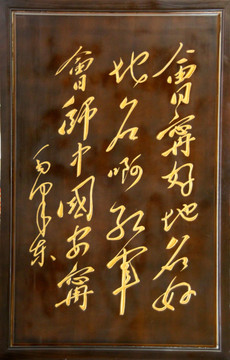 會寧好地名好
地名啊紅軍
會師中國安寧
毛澤東